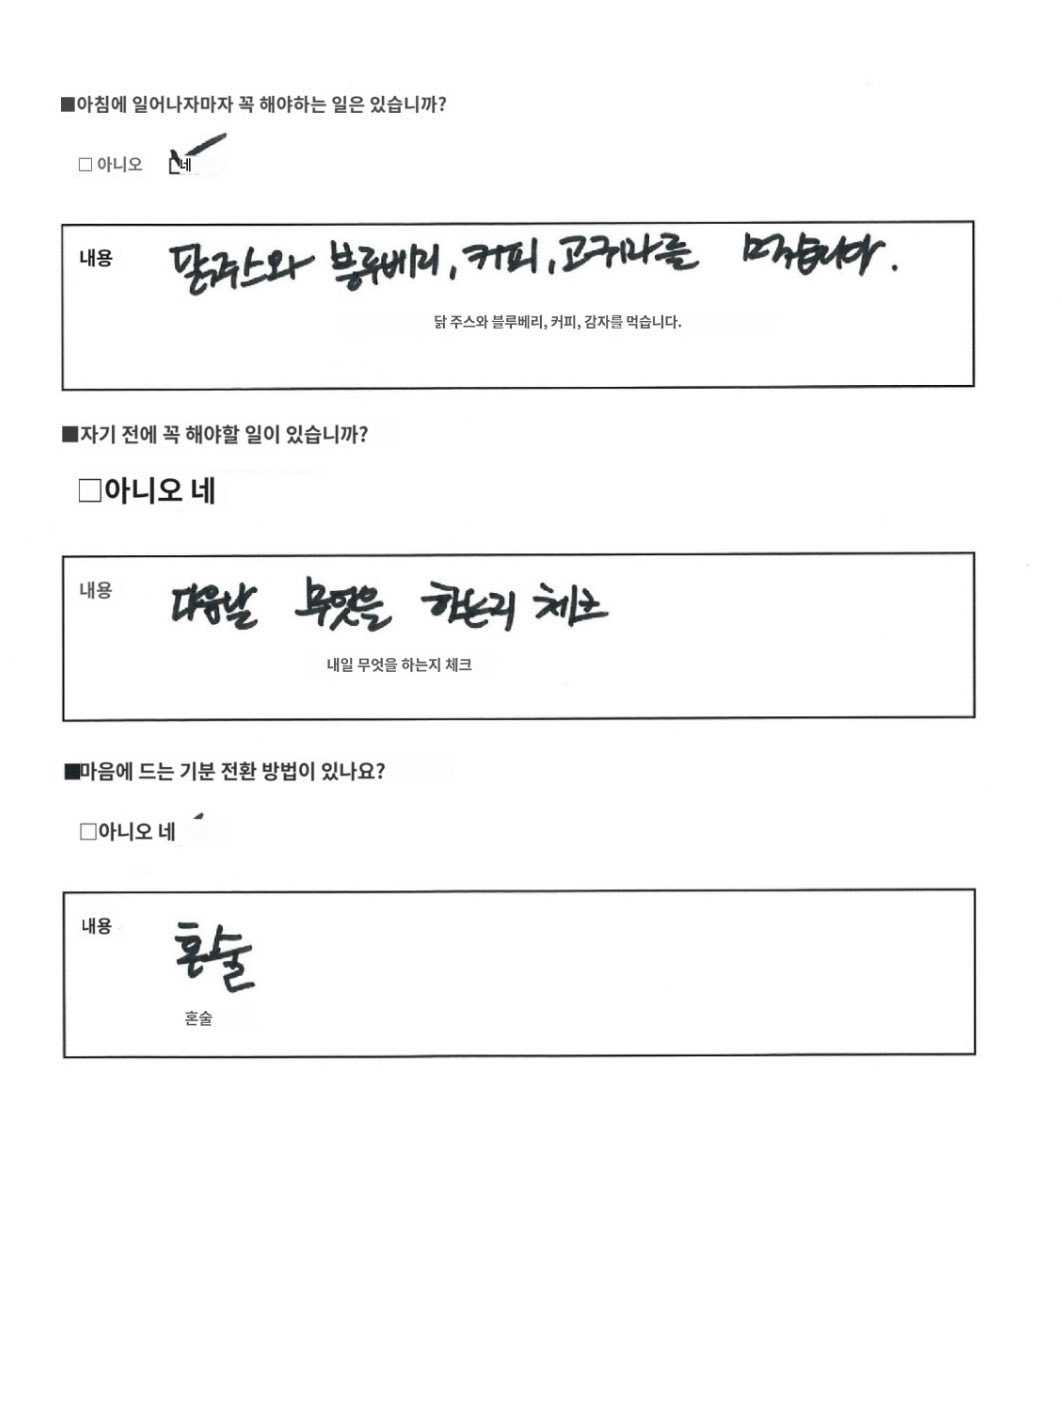 ■아침에 일어나자마자 꼭 해야하는 일은 있습니까?
□ 아니오 □네
내용
닭쥬스와 블루베리, 커피, 고구마를 먹습니다.
닭 주스와 블루베리, 커피, 감자를 먹습니다.
■자기 전에 꼭 해야할 일이 있습니까?
□아니오 네
내용
다음날 무엇을 하는지 체크
내일 무엇을 하는지 체크
■마음에 드는 기분 전환 방법이 있나요?
□아니오 네
내용
혼술
혼술